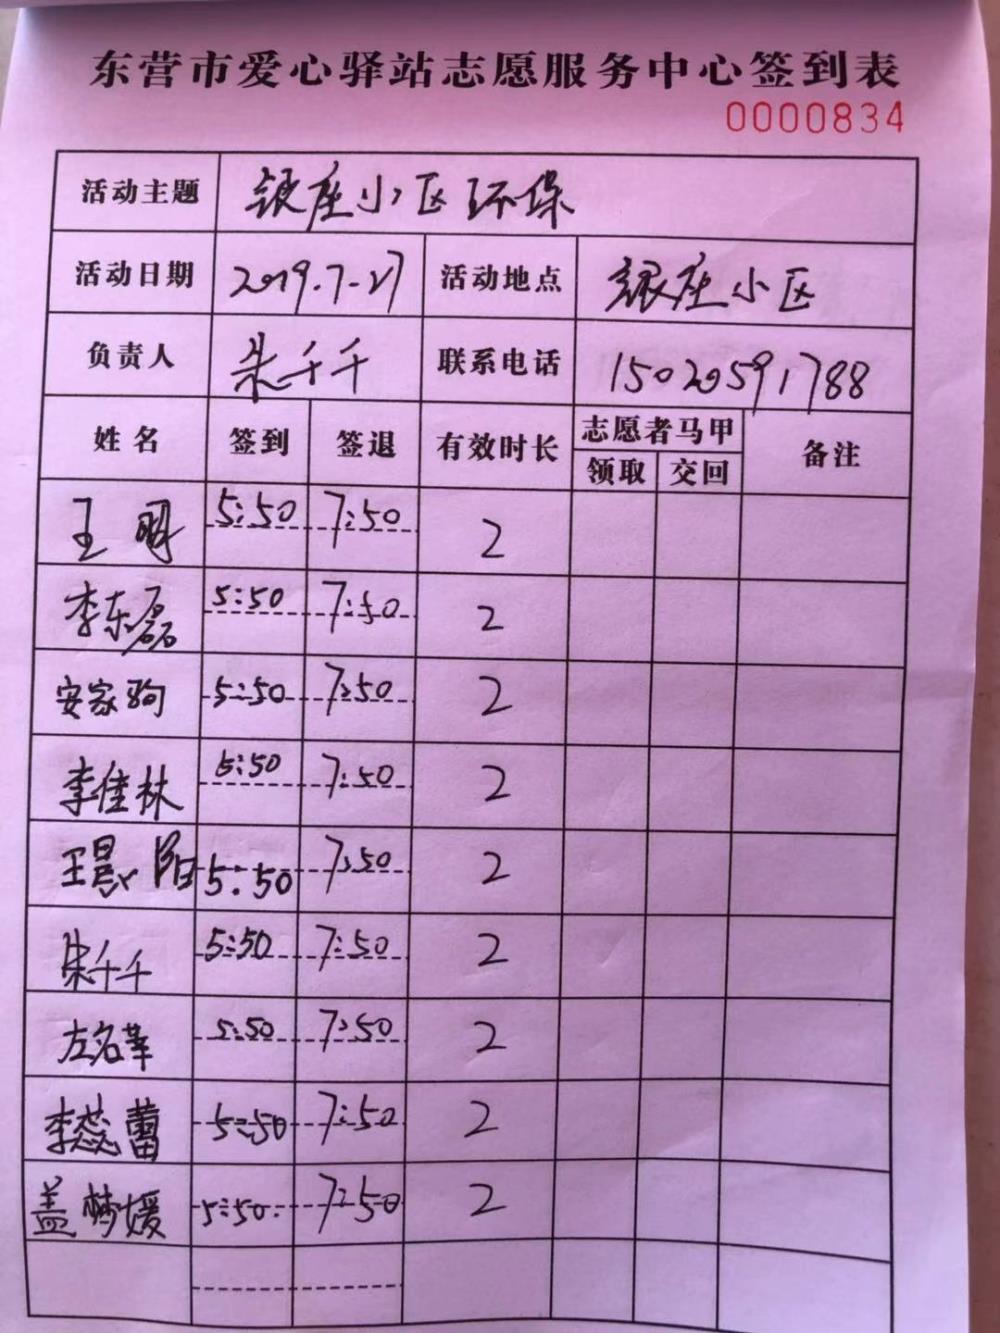 东营市爱心驿站志愿服务中心签到表
0000834
活动主题 银座小区环保
活动日期 2019.7-27 活动地点 银座小区
负责人 朱千千 联系电话 15020591788
姓名 签到 签退 有效时长 志愿者马甲 备注
领取 交回
王明 5:50 7:50 2
李东磊 5:50 7:50 2
安家驹 5:50 7:50 2
李佳林 5:50 7:50 2
王晨阳 5:50 7:50 2
朱千千 5:50 7:50 2
左名苹 5:50 7:50 2
李蕊蕾 5:50 7:50 2
盖梦媛 5:50 7:50 2